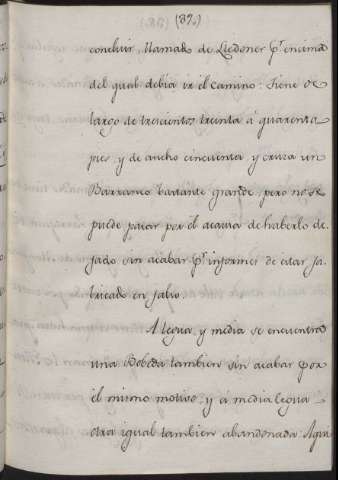 (37.)
concluir, llamado de Lledoner pr. encima
del qual debia ir el camino: Tiene de
largo de trescientos treinta á quarenta
pies, y de ancho cincuenta, y cruza un
Barranco bastante grande, pero no se
puede pasar por el acaso de haberlo de-
jado sin acabar pr. informes de estar fa-
bricado en falso.
A legua, y media se encuentra
una Bobeda tambien sin acabar por
el mismo motivo, y á media legua
otra igual tambien abandonada. Aqui